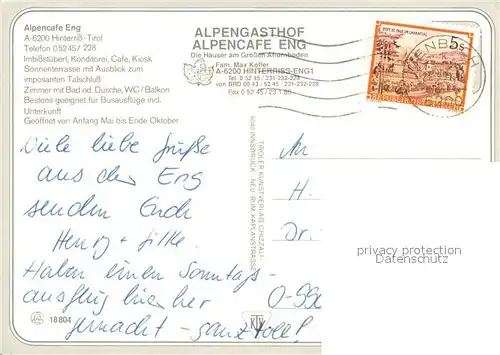 Alpencafe Eng
A-6200 Hinterriß - Tirol
Telefon 0 52 45 / 228
Imbißstüberl, Konditorei, Cafe, Kiosk
Sonnenterrasse mit Ausblick zum
imposanten Talschluß
Zimmer mit Bad od. Dusche, WC / Balkon
Bestens geeignet für Busausflüge incl.
Unterkunft
Geöffnet von Anfang Mai bis Ende Oktober
ALPENGASTHOF
ALPENCAFE ENG
Die Häuser am Großen Ahornboden
Fam. Max Kofler
A-6200 HINTERRISS-ENG1
Tel. 0 52 45 - 231-232-228
von BRD 00 43 - 52 45 - 231-232-228
Fax 0 52 45 / 23 1 80
5s
REPUBLIK
Viele liebe Grüße
aus der Eng
senden Euch
Henry + Silke.
Haben einen Sonntags-
ausflug hierher
gemacht - ganz toll!
18804
TIROLER KUNSTVERLAG CHIZZALI
6040 INNSBRUCK - NEU RUM, KAPLANSTRASSE
An
H.
Dr.
privacy protection
Datenschutz